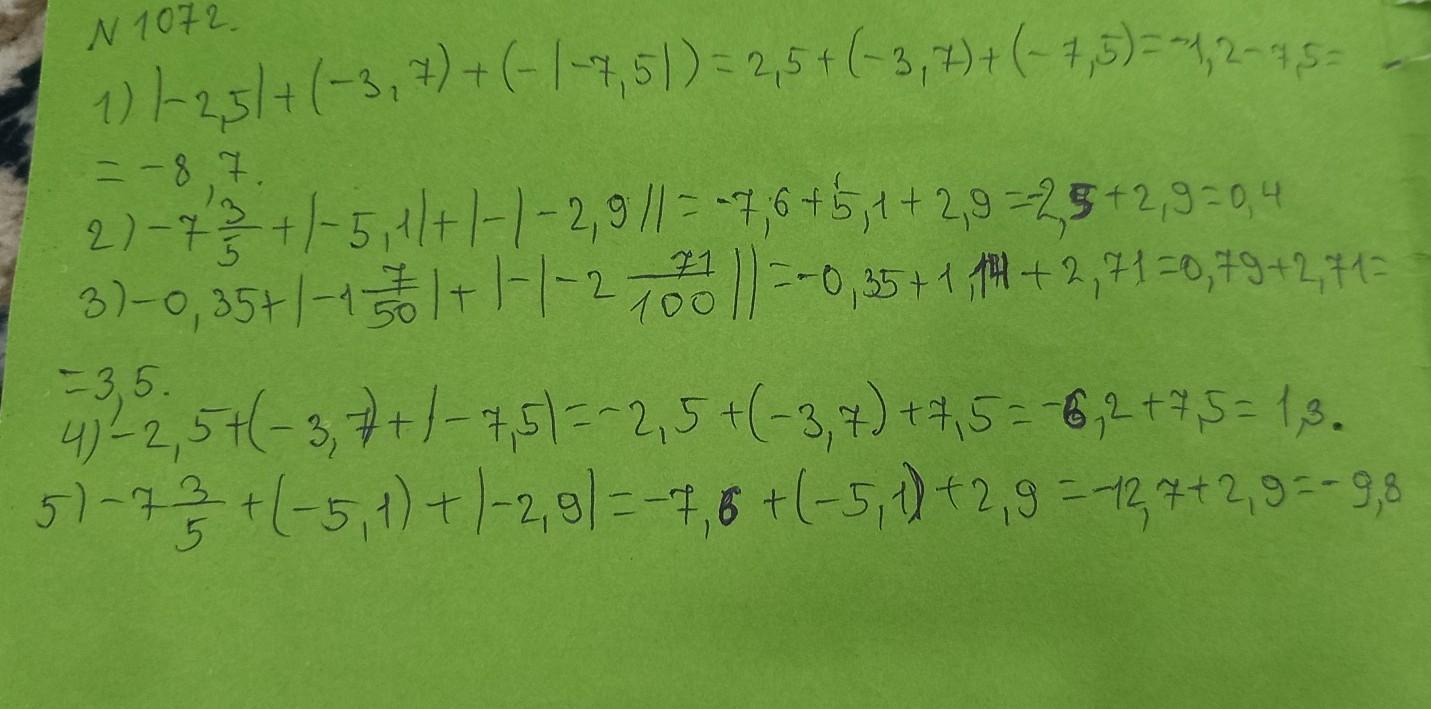 N 1072.
1) |-2,5|+(-3,7)+(-|-7,5|)=2,5+(-3,7)+(-7,5)=-1,2-7,5=
=-8,7.
2) -7 3/5 +|-5,1|+|-|-2,9||=-7,6+5,1+2,9=-2,5+2,9=0,4
3) -0,35+|-1 7/50|+|-|-2 71/100||=-0,35+1,14+2,71=0,79+2,71=
=3,5.
4) -2,5+(-3,7)+|-7,5|=-2,5+(-3,7)+7,5=-6,2+7,5=1,3.
5) -7 3/5 +(-5,1)+|-2,9|=-7,6+(-5,1)+2,9=-12,7+2,9=-9,8